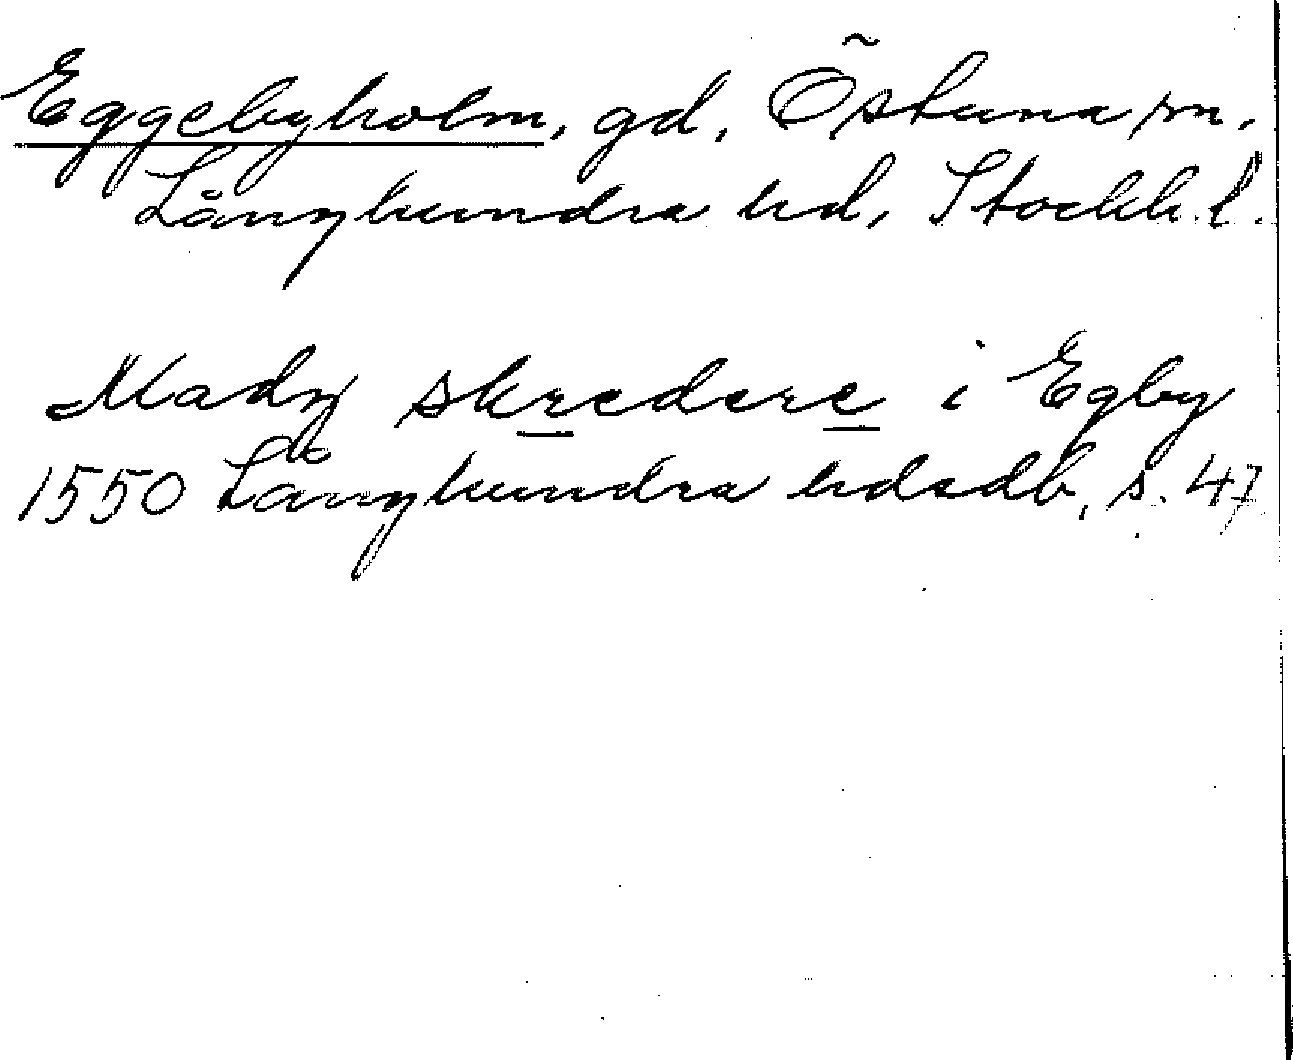 Eggebyholm, gd, Östuna sn.
Långhundra hd, Stockh. l.
Mady skredere i Egby
1550 Långhundra hdsdb, s. 47